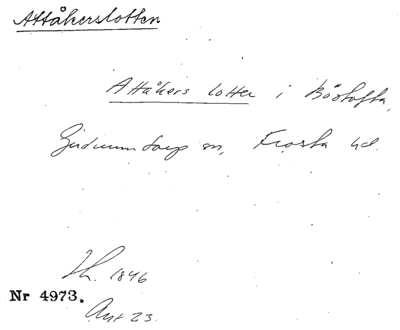 Attåkerslotten
Attåkers lotter i Böstofta,
Gudmuntorp sn, Frosta hd.
Th. 1846
Nr 4973.
Ant 23.